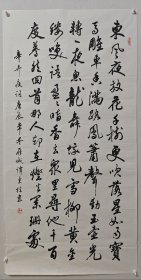 東風夜放花千樹更吹落星如雨寶
馬雕車香滿路鳳簫聲動玉壺光
轉一夜魚龍舞蛾兒雪柳黃金
縷笑語盈盈暗香去衆里尋他千百
度驀然回首那人却在燈火闌珊處
辛弃疾詞庚辰年冬